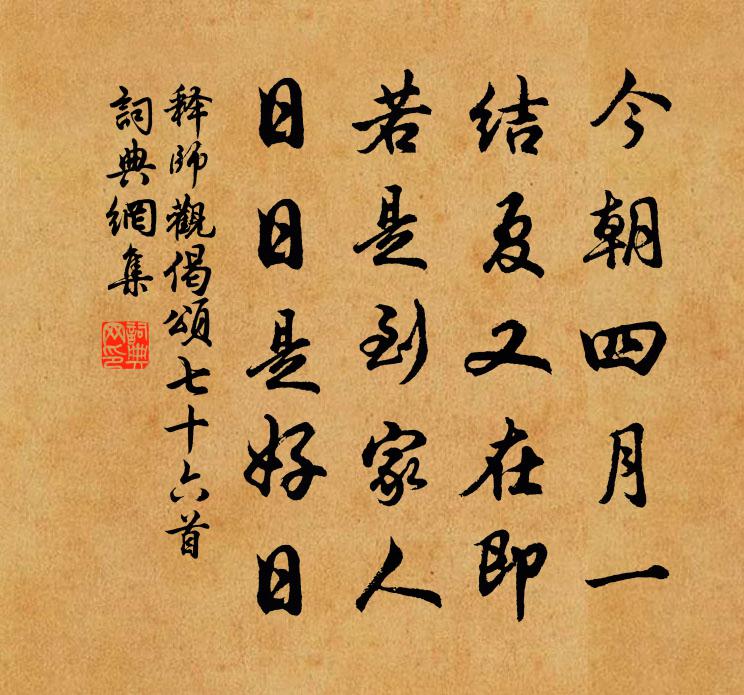 今朝四月一
结夏又在即
若是到家人
日日是好日
释師觀偈頌七十六首
詞典網集
詞典网印